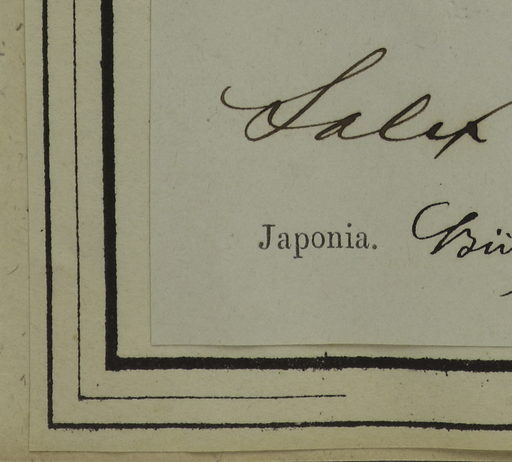 Salix
Japonia.